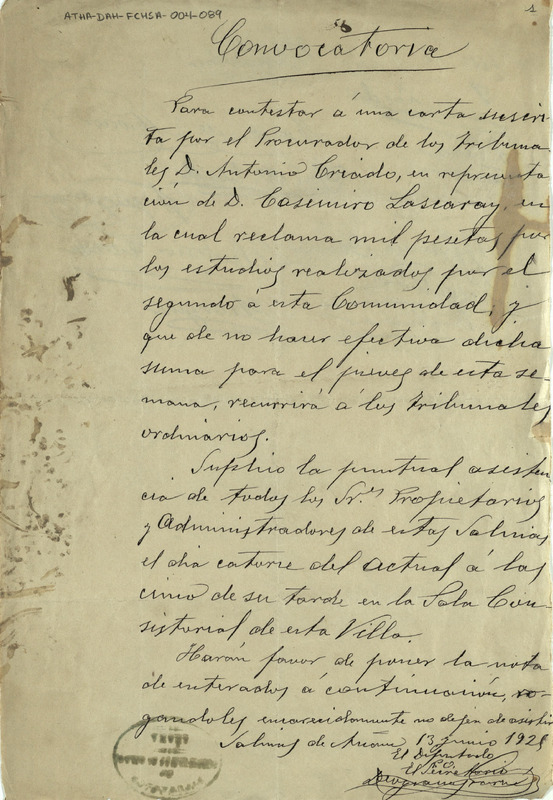 ATHA-DAH-FCHSA-004-089
1
Convocatoria
Para contestar á una carta suscri-
ta por el Procurador de los tribuna-
les D. Antonio Criado, en representa
ción de D. Casimiro Lascaray, en
la cual reclama mil pesetas por
los estudios realizados por el
segundo á esta Comunidad, y
que de no hacer efectiva dicha
suma para el jueves de esta se-
mana, recurrirá á los tribunales
ordinarios.
Suplico la puntual asisten-
cia de todos los Srs. Propietarios
y Administradores de estas Salinas
el dia catorce del actual á las
cinco de su tarde en la Sala Con-
sistorial de esta Villa.
Harán favor de poner la nota
de enterados á continuación, ro-
gandoles encarecidamente no dejen de asistir
Salinas de Añana 13 junio 192
El Diputado
P.O.
El Secretario